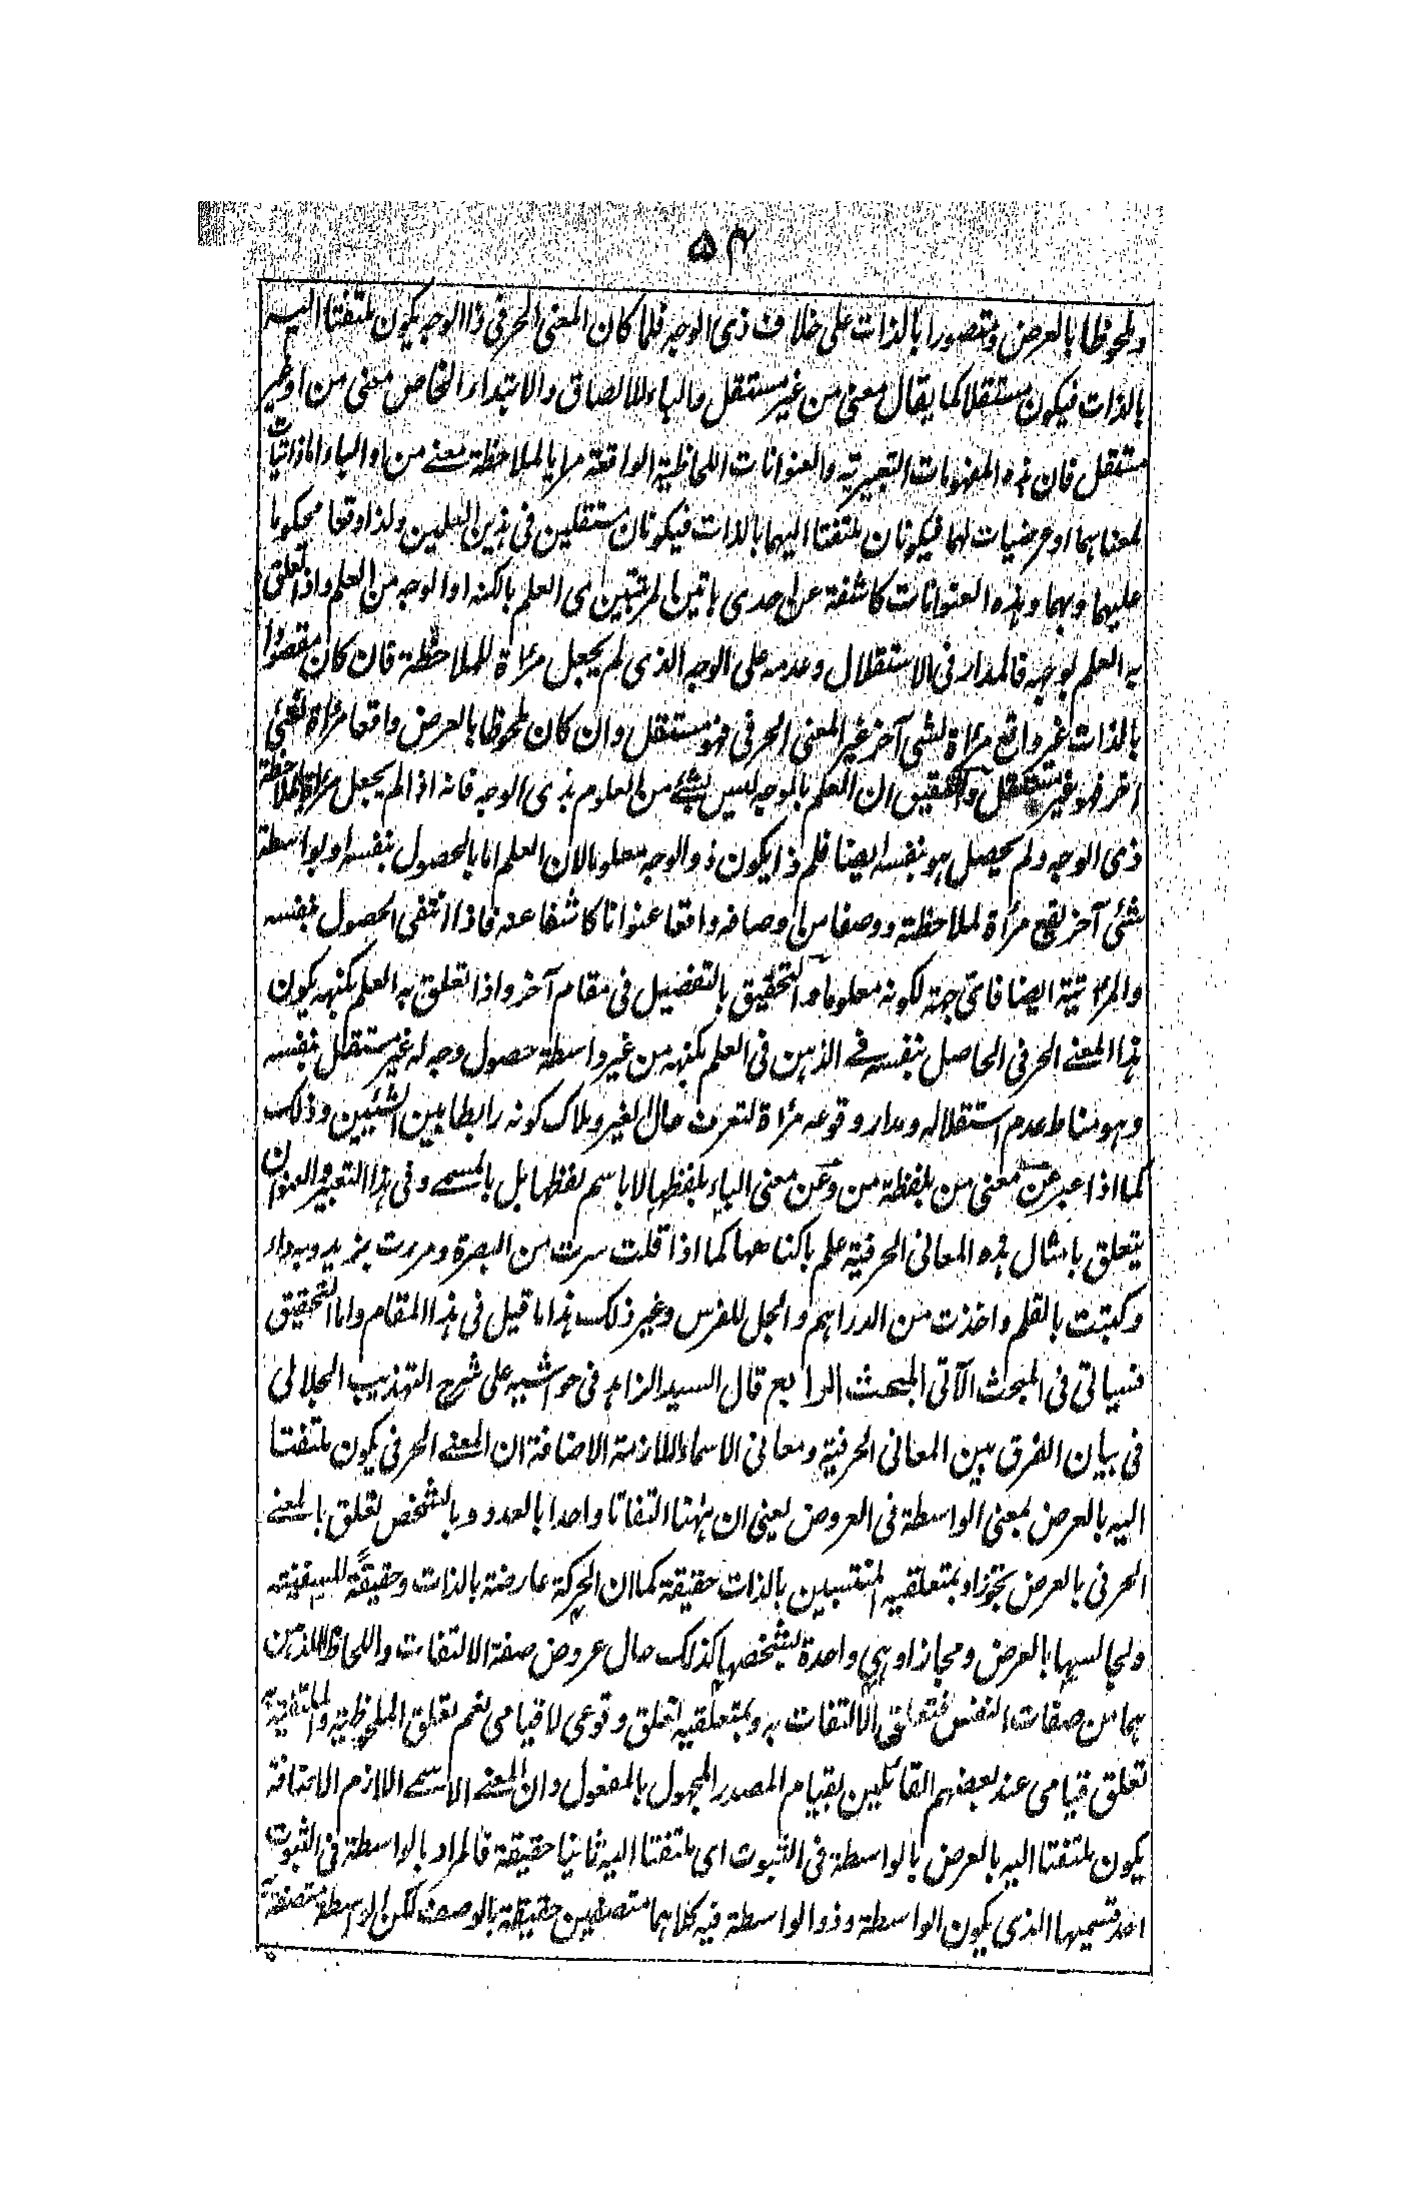 ۵۴
وملحوظا بالعرض ومتصورا بالذات على خلاف ذى الوجه فلما كان المعنى الحرفى ذا الوجه يكون ملتفتا اليه
بالذات فيكون مستقلا كما يقال معنى من غير مستقل والباء للالصاق والابتداء الخاص معنى من او غير
مستقل فان هذه المفهومات التعبيرية والعنوانات اللحاظية الواقعة مرايا لملاحظة معنے من او الباء اما ذاتيات
لمعناهما او عرضيات لهما فيكونان ملتفتا اليهما بالذات فيكونان مستقلين فى هذين العلمين ولذا وقعا محكوما
عليهما وبهما وهذه العنوانات كاشفة عن احدى هاتين المرتبتين اى العلم بالكنه او الوجه من العلم واذا تعلق
به العلم بوجهه فالمدار فى الاستقلال وعدمه على الوجه الذى لم يجعل مرأة للملاحظة فان كان مقصودا
بالذات غير واقع مرأة لشئ آخر غير المعنى الحرفى فهو مستقل وان كان ملحوظا بالعرض واقعا مرأة لشئ
آخر فهو غير مستقل والتحقيق ان العلم بالوجه ليس بشئے من العلوم بذى الوجه فانه اذا لم يجعل مرأة لملاحظة
ذى الوجه ولم يحصل هو بنفسه ايضا فلم ذا يكون ذو الوجه معلوما لان العلم اما بالحصول بنفسه او بواسطة
شئ آخر يقع مرأة لملاحظته ووصفا من اوصافه واقعا عنوانا كاشفا عنه فاذا انتفى الحصول بنفسه
والمرئية ايضا فاىّ جهة لكونه معلوما والتحقيق بالتفصيل فى مقام آخر واذا تعلق به العلم بكنهه يكون
هذا المعنے الحرفى الحاصل بنفسه فے الذهن فى العلم بكنهه من غير واسطة حصول وجه له غير مستقل بنفسه
وهو مناط عدم استقلاله ومدار وقوعه مرأة لتعرف حال الغير وملاك كونه رابطا بين الشيئين وذلك
كما اذا عبر عن معنى من بلفظة من وعن معنى الباء بلفظها لا باسم لفظها بل بالمسمے وفى هذا التعبير والعنوان
يتعلق بامثال هذه المعانى الحرفية علم باكناهها كما اذا قلت سرت من البصرة ومررت بزيد وبه داء
وكتبت بالقلم واخذت من الدراهم والجل للفرس وغير ذلك هذا ما قيل فى هذا المقام واما التحقيق
فسياتى فى المبحث الآتى المبحث الرابع قال السيد الزاهد فى حواشيه على شرح التهذيب الجلالى
فى بيان الفرق بين المعانى الحرفية ومعانى الاسماء اللازمة الاضافة ان المعنے الحرفى يكون ملتفتا
اليه بالعرض بمعنى الواسطة فى العروض يعنى ان ههنا التفاتا واحدا بالعدد وبالشخص تعلق بالمعنے
الحرفى بالعرض تجوزا وبمتعلقيه المنتسبين بالذات حقيقة كما ان الحركة عارضة بالذات وحقيقةً للسفينة
ولجالسيها بالعرض ومجازا وهى واحدة بشخصها كذلك حال عروض صفة الالتفات واللحاظ اللذين
هما من صفات النفس فتعلق الالتفات به وبمتعلقيه تعلق وقوعى لا قيامى نعم تعلق الملحوظية والملتفتية
تعلق قيامى عند بعضهم القائلين بقيام المصدر المجهول بالمفعول وان المعنے الاسمے اللازم الاضافة
يكون ملتفتا اليه بالعرض بالواسطة فى الثبوت اى ملتفتا اليه ثانيا حقيقة فالمراد بالواسطة فى الثبوت
احد قسميها الذى يكون الواسطة وذو الواسطة فيه كلاهما متصفين حقيقة بالوصف لكن الواسطة متصفة